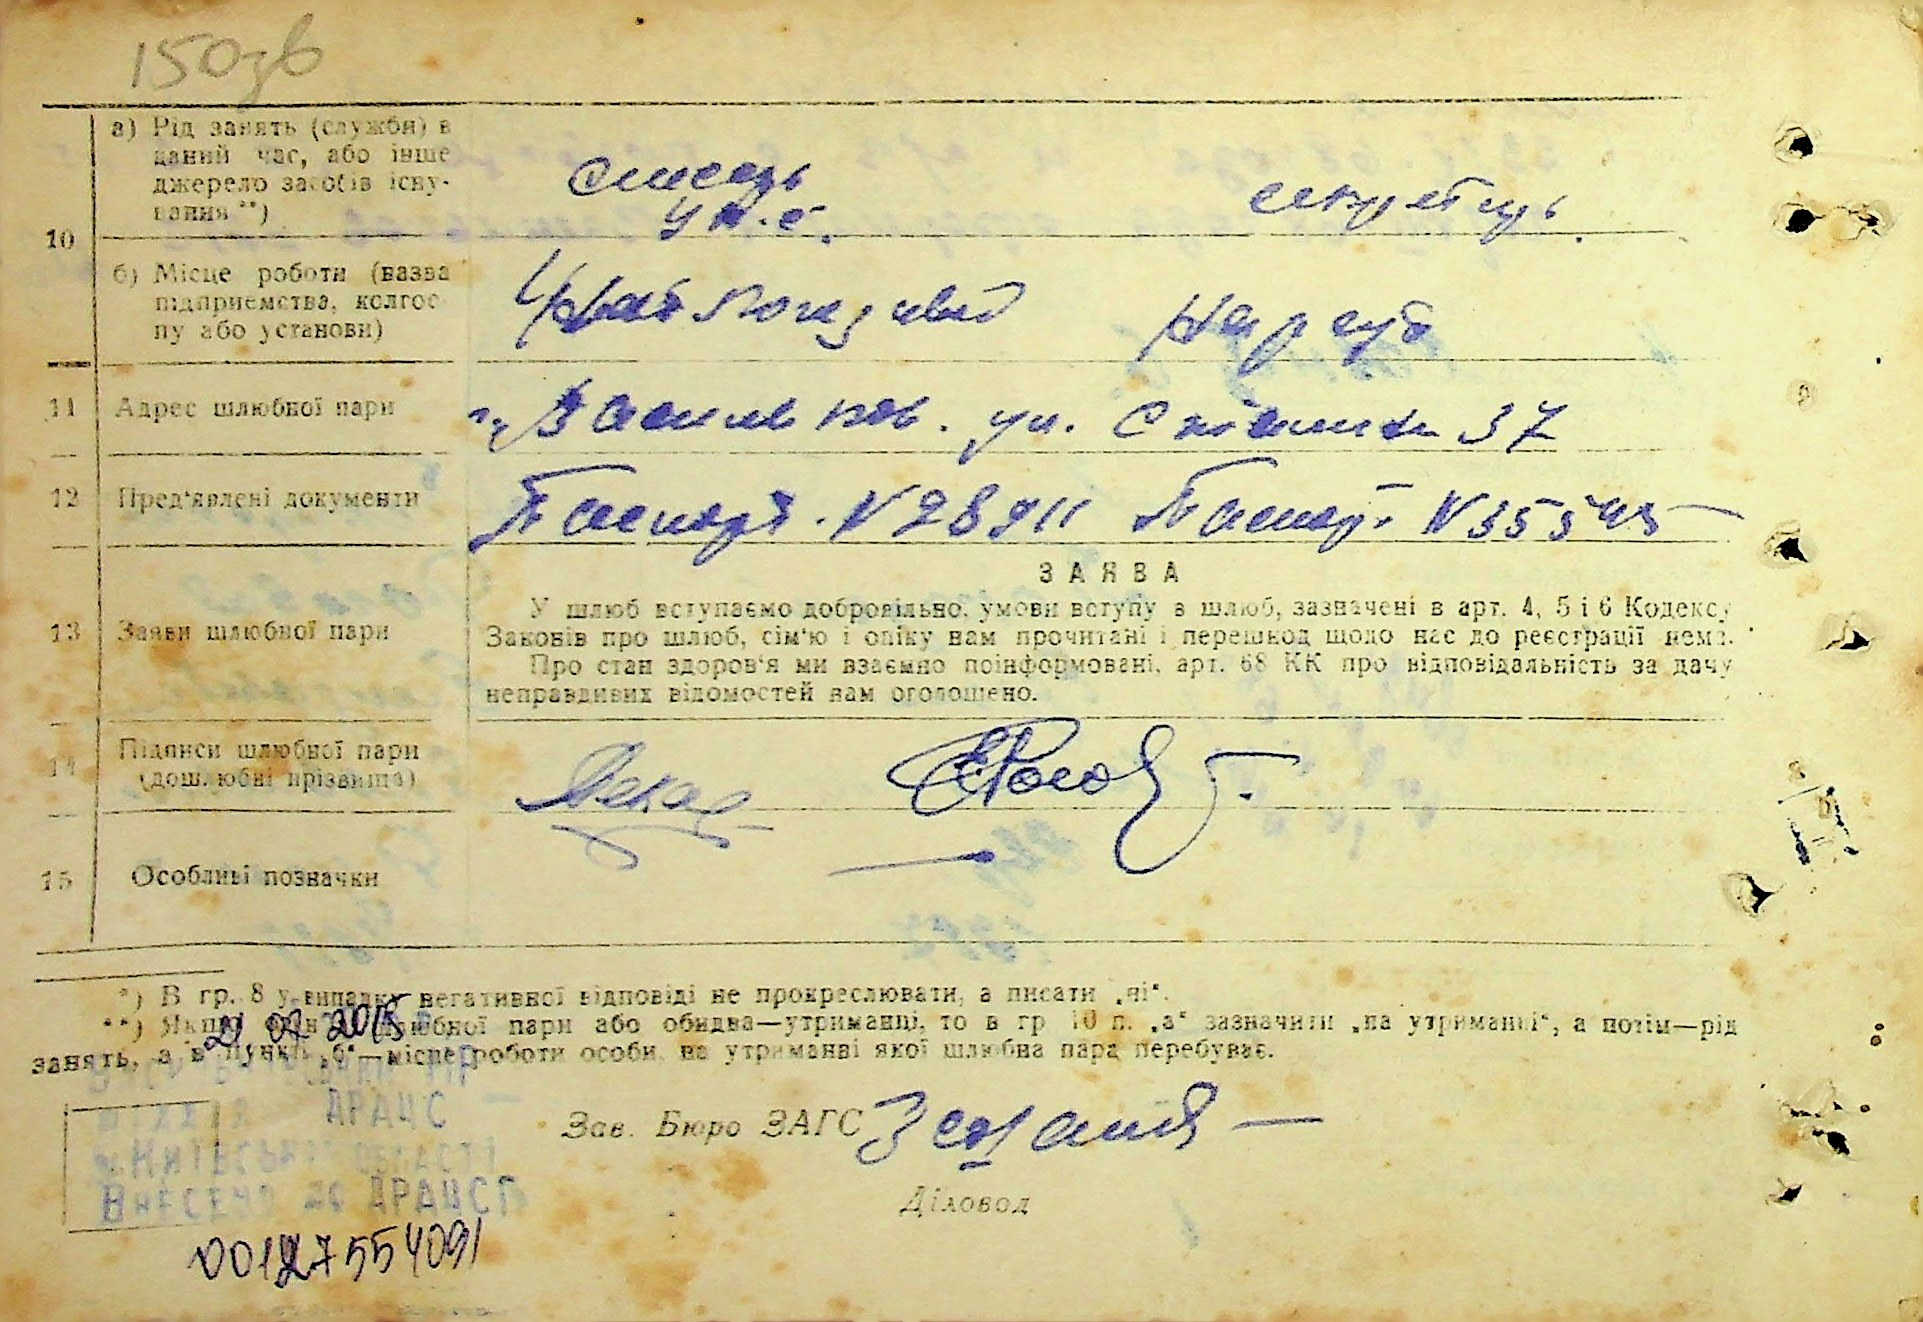 150зв
10
а) Рід занять (служби) в
даний час, або інше
джерело засобів існу-
вання **)
секретарь
б) Місце роботи (назва
підприємства, колгос-
пу або установи)
Нарсуд
11 Адрес шлюбної пари
г. Васильков. ул. 37
12 Пред'явлені документи
Паспорт. N 28911 Паспорт N 35545
ЗАЯВА
13 Заяви шлюбної пари
У шлюб вступаємо добровільно, умови вступу в шлюб, зазначені в арт. 4, 5 і 6 Кодексу
Законів про шлюб, сім'ю і опіку нам прочитані і перешкод щодо нас до реєстрації нема.
Про стан здоров'я ми взаємно поінформовані, арт. 68 КК про відповідальність за дачу
неправдивих відомостей нам оголошено.
14 Підписи шлюбної пари
(дошлюбні прізвища)
15 Особливі позначки
*) В гр. 8 у випадку негативної відповіді не прокреслювати, а писати „ні“.
**) Якщо один з шлюбної пари або обидва—утриманці, то в гр 10 п. „а“ зазначити „на утриманні“, а потім—рід
занять, а в пункті „б“—місце роботи особи, на утриманні якої шлюбна пара перебуває.
21 07 2015
ДРАЦС
Київської області
Внесено до ДРАЦСГ
00127554091
Зав. Бюро ЗАГС
Діловод